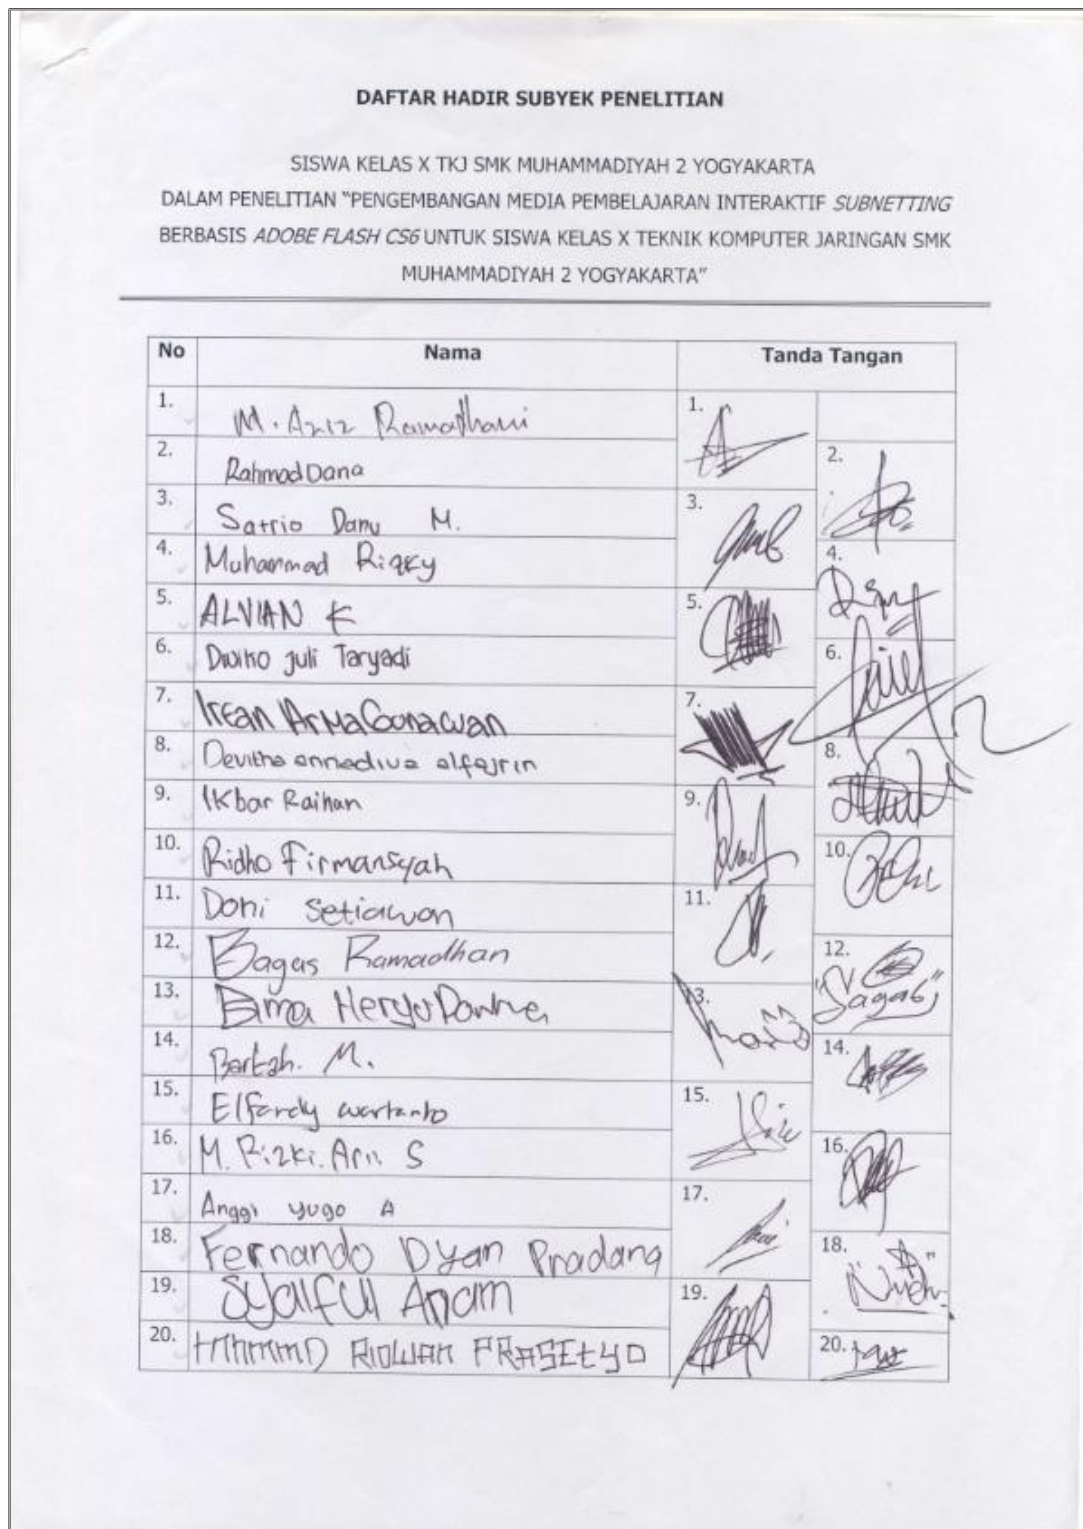 DAFTAR HADIR SUBYEK PENELITIAN
SISWA KELAS X TKJ SMK MUHAMMADIYAH 2 YOGYAKARTA
DALAM PENELITIAN "PENGEMBANGAN MEDIA PEMBELAJARAN INTERAKTIF SUBNETTING
BERBASIS ADOBE FLASH CS6 UNTUK SISWA KELAS X TEKNIK KOMPUTER JARINGAN SMK
MUHAMMADIYAH 2 YOGYAKARTA"
No Nama Tanda Tangan
1. M. Aziz Ramadhani 1.
2. Rahmad Dana 2.
3. Satrio Danu M. 3.
4. Muhammad Rizky 4.
5. ALVIAN K 5.
6. Dwiko Juli Taryadi 6.
7. Irfan Arma Gunawan 7.
8. Devitha annediva alfajrin 8.
9. Ikbar Raihan 9.
10. Ridho Firmansyah 10.
11. Doni Setiawan 11.
12. Bagas Ramadhan 12.
13. 13.
14. M. 14.
15. Elfardy wartanto 15.
16. M. Rizki. S 16.
17. Anggi yugo A 17.
18. Fernando Dyan Pradana 18.
19. Syaiful Anam 19.
20. RIDWAN PRASETYO 20.